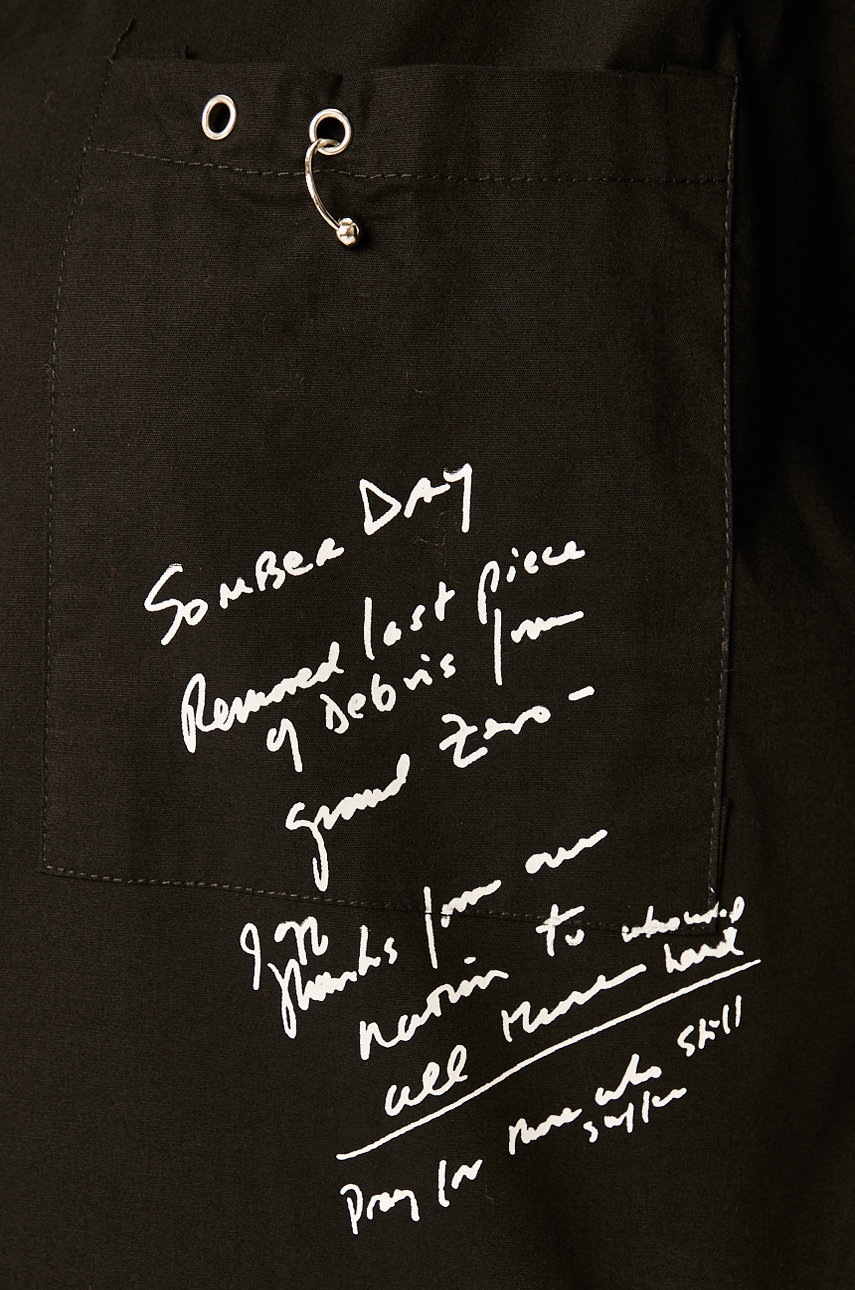 SOMBER DAY
Removed last piece
of Debris from
ground Zero -
thanks from our
nation to who
all those hard
Pray for those who still
suffer